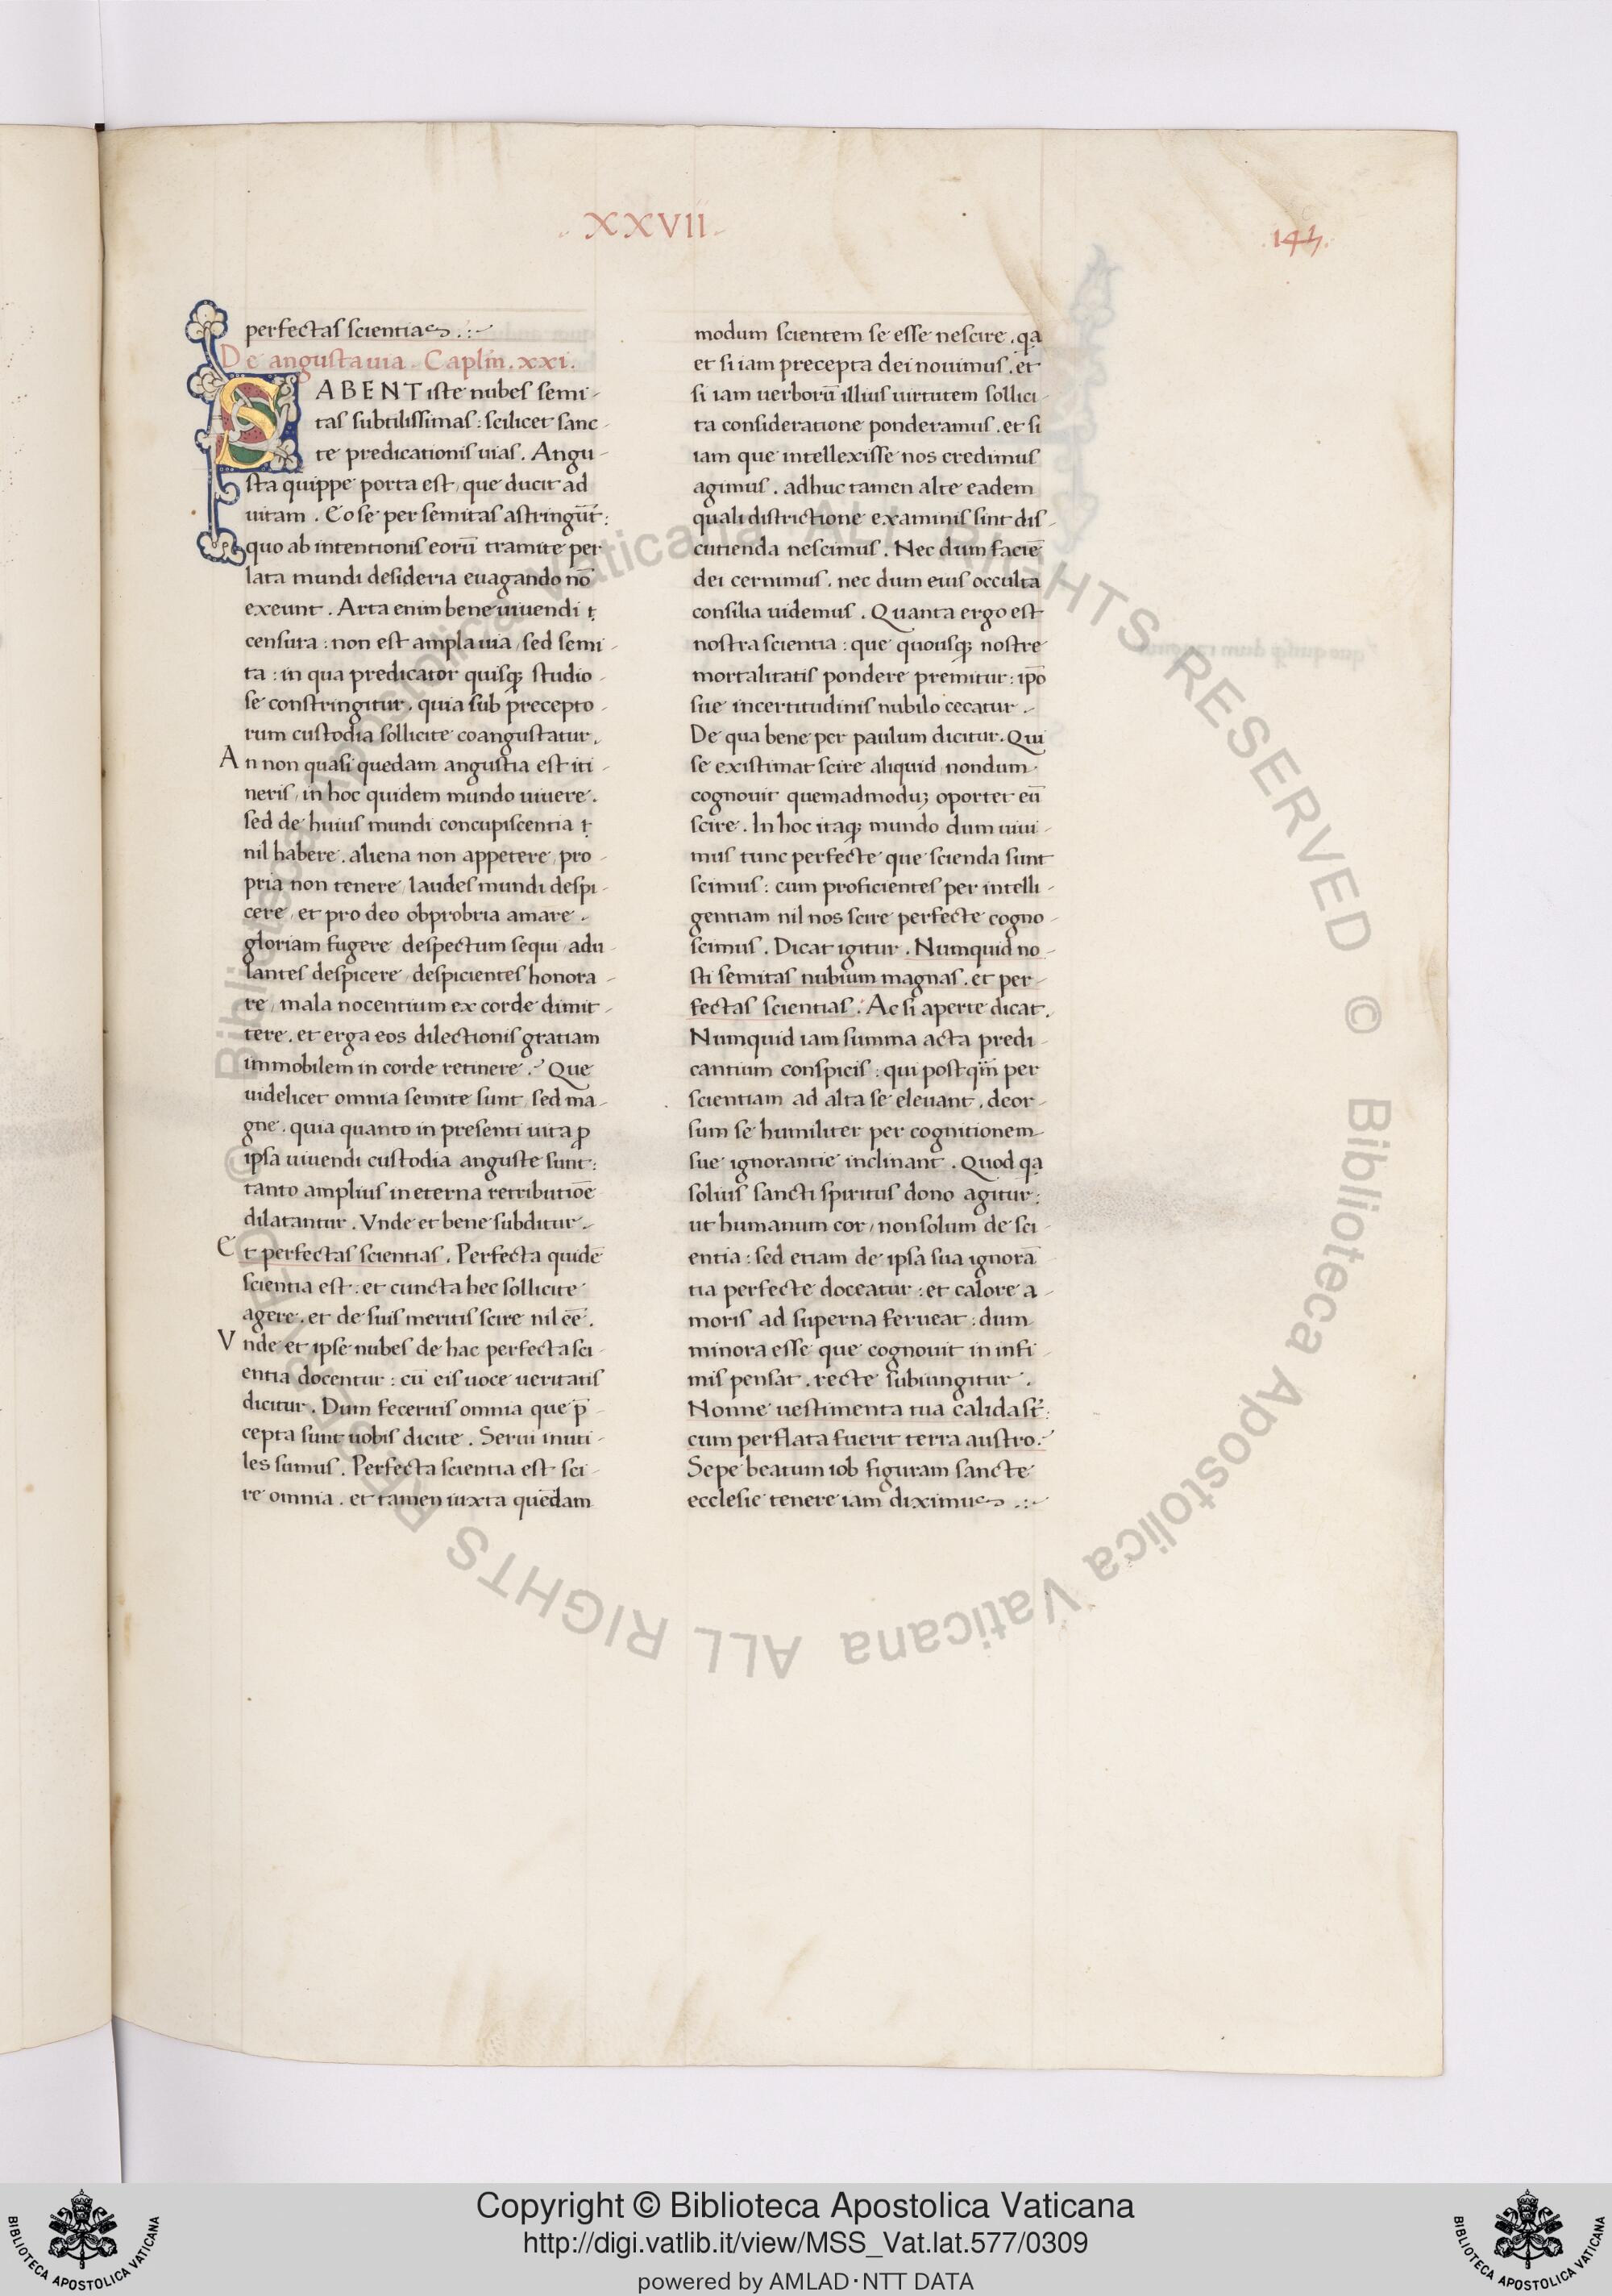 XXVII
147.
perfectas scientias .:~
De angusta uia. Capl̄m. xxi.
SABENT iste nubes semi-
tas subtilissimas: scilicet sanc-
te predicationis uias. Angu-
sta quippe porta est, que ducit ad
uitam. Eo se per semitas astringūt:
quo ab intentionis eorū tramite per
lata mundi desideria euagando nō
exeunt. Arta enim bene uiuendi ē
censura: non est ampla uia, sed semi-
ta: in qua predicator quisq; studio-
se constringitur, quia sub precepto-
rum custodia sollicite coangustatur.
An non quasi quedam angustia est iti-
neris, in hoc quidem mundo uiuere.
sed de huius mundi concupiscentia
nil habere. aliena non appetere, pro-
pria non tenere, laudes mundi despi-
cere, et pro deo obprobria amare.
gloriam fugere, despectum sequi, adu-
lantes despicere, despicientes honora-
re, mala nocentium ex corde dimit-
tere. et erga eos dilectionis gratiam
immobilem in corde retinere. Que
uidelicet omnia semite sunt, sed ma-
gne. quia quanto in presenti uita ꝓ
ipsa uiuendi custodia anguste sunt:
tanto amplius in eterna retributiōe
dilatantur. Vnde et bene subditur.
Et perfectas scientias. Perfecta quidē
scientia est: et cuncta hec sollicite
agere. et de suis meritis scire nil eē.
Vnde et ipse nubes de hac perfecta sci-
entia docentur: cū eis uoce ueritatis
dicitur. Dum feceritis omnia que p̄-
cepta sunt uobis dicite. Serui inuti-
les sumus. Perfecta scientia est sci-
re omnia. et tamen iuxta quedam
modum scientem se esse nescire. qa
et si iam precepta dei nouimus. et
si iam uerborū illius uirtutem sollici-
ta consideratione ponderamus. et si
iam que intellexisse nos credimus
agimus. adhuc tamen alte eadem
quali districtione examinis sint dis-
cutienda nescimus. Nec dum faciē
dei cernimus. nec dum eius occulta
consilia uidemus. Quanta ergo est
nostra scientia: que quousq; nostre
mortalitatis pondere premitur: ip̄o
sue incertitudinis nubilo cecatur.
De qua bene per paulum dicitur. Qui
se existimat scire aliquid, nondum
cognouit quemadmoduꝫ oportet eū
scire. In hoc itaq; mundo dum uiui-
mus tunc perfecte que scienda sunt
scimus: cum proficientes per intelli-
gentiam nil nos scire perfecte cogno-
scimus. Dicat igitur. Numquid no-
sti semitas nubium magnas. et per-
fectas scientias. Ac si aperte dicat.
Numquid iam summa acta predi-
cantium conspicis: qui postq̄m per
scientiam ad alta se eleuant. deor-
sum se humiliter per cognitionem
sue ignorantie inclinant. Quod qa
solius sancti spiritus dono agitur:
ut humanum cor, non solum de sci-
entia: sed etiam de ipsa sua ignorā
tia perfecte doceatur: et calore a-
moris ad superna ferueat: dum
minora esse que cognouit in infi-
mis pensat. recte subiungitur.
Nonne uestimenta tua calida st̄:
cum perflata fuerit terra austro.
Sepe beatum iob figuram sancte
ecclesie tenere iam diximus .:~
© Biblioteca Apostolica Vaticana ALL RIGHTS RESERVED © Biblioteca Apostolica Vaticana ALL RIGHTS RESERVED
Copyright © Biblioteca Apostolica Vaticana
http://digi.vatlib.it/view/MSS_Vat.lat.577/0309
powered by AMLAD·NTT DATA
BIBLIOTECA APOSTOLICA VATICANA
BIBLIOTECA APOSTOLICA VATICANA